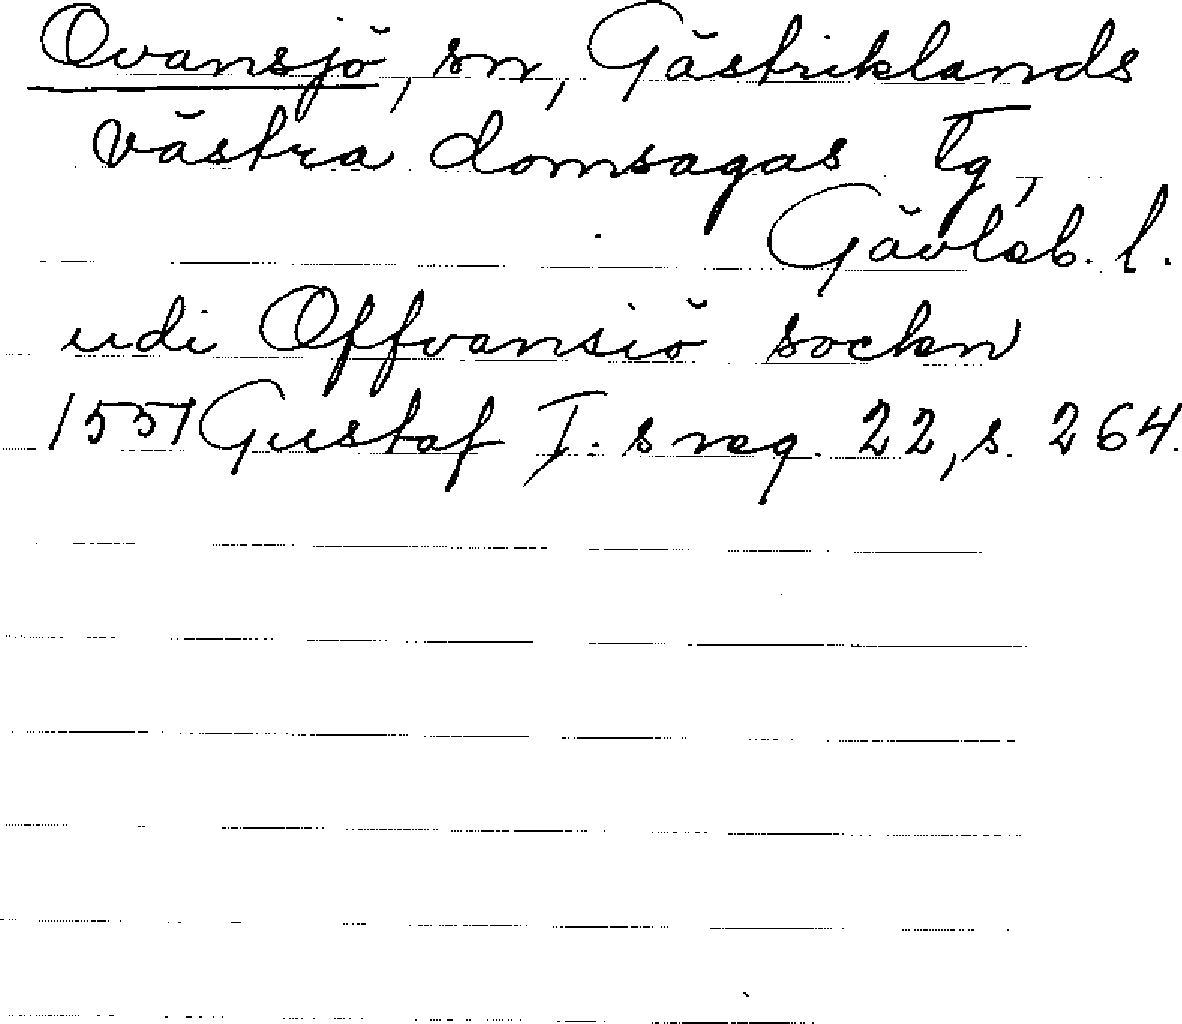 Ovansjö, sn, Gästriklands
västra domsagas tg,
Gävleb. l.
udi Offvansiö sockn
1551 Gustaf I:s reg. 22, s. 264.